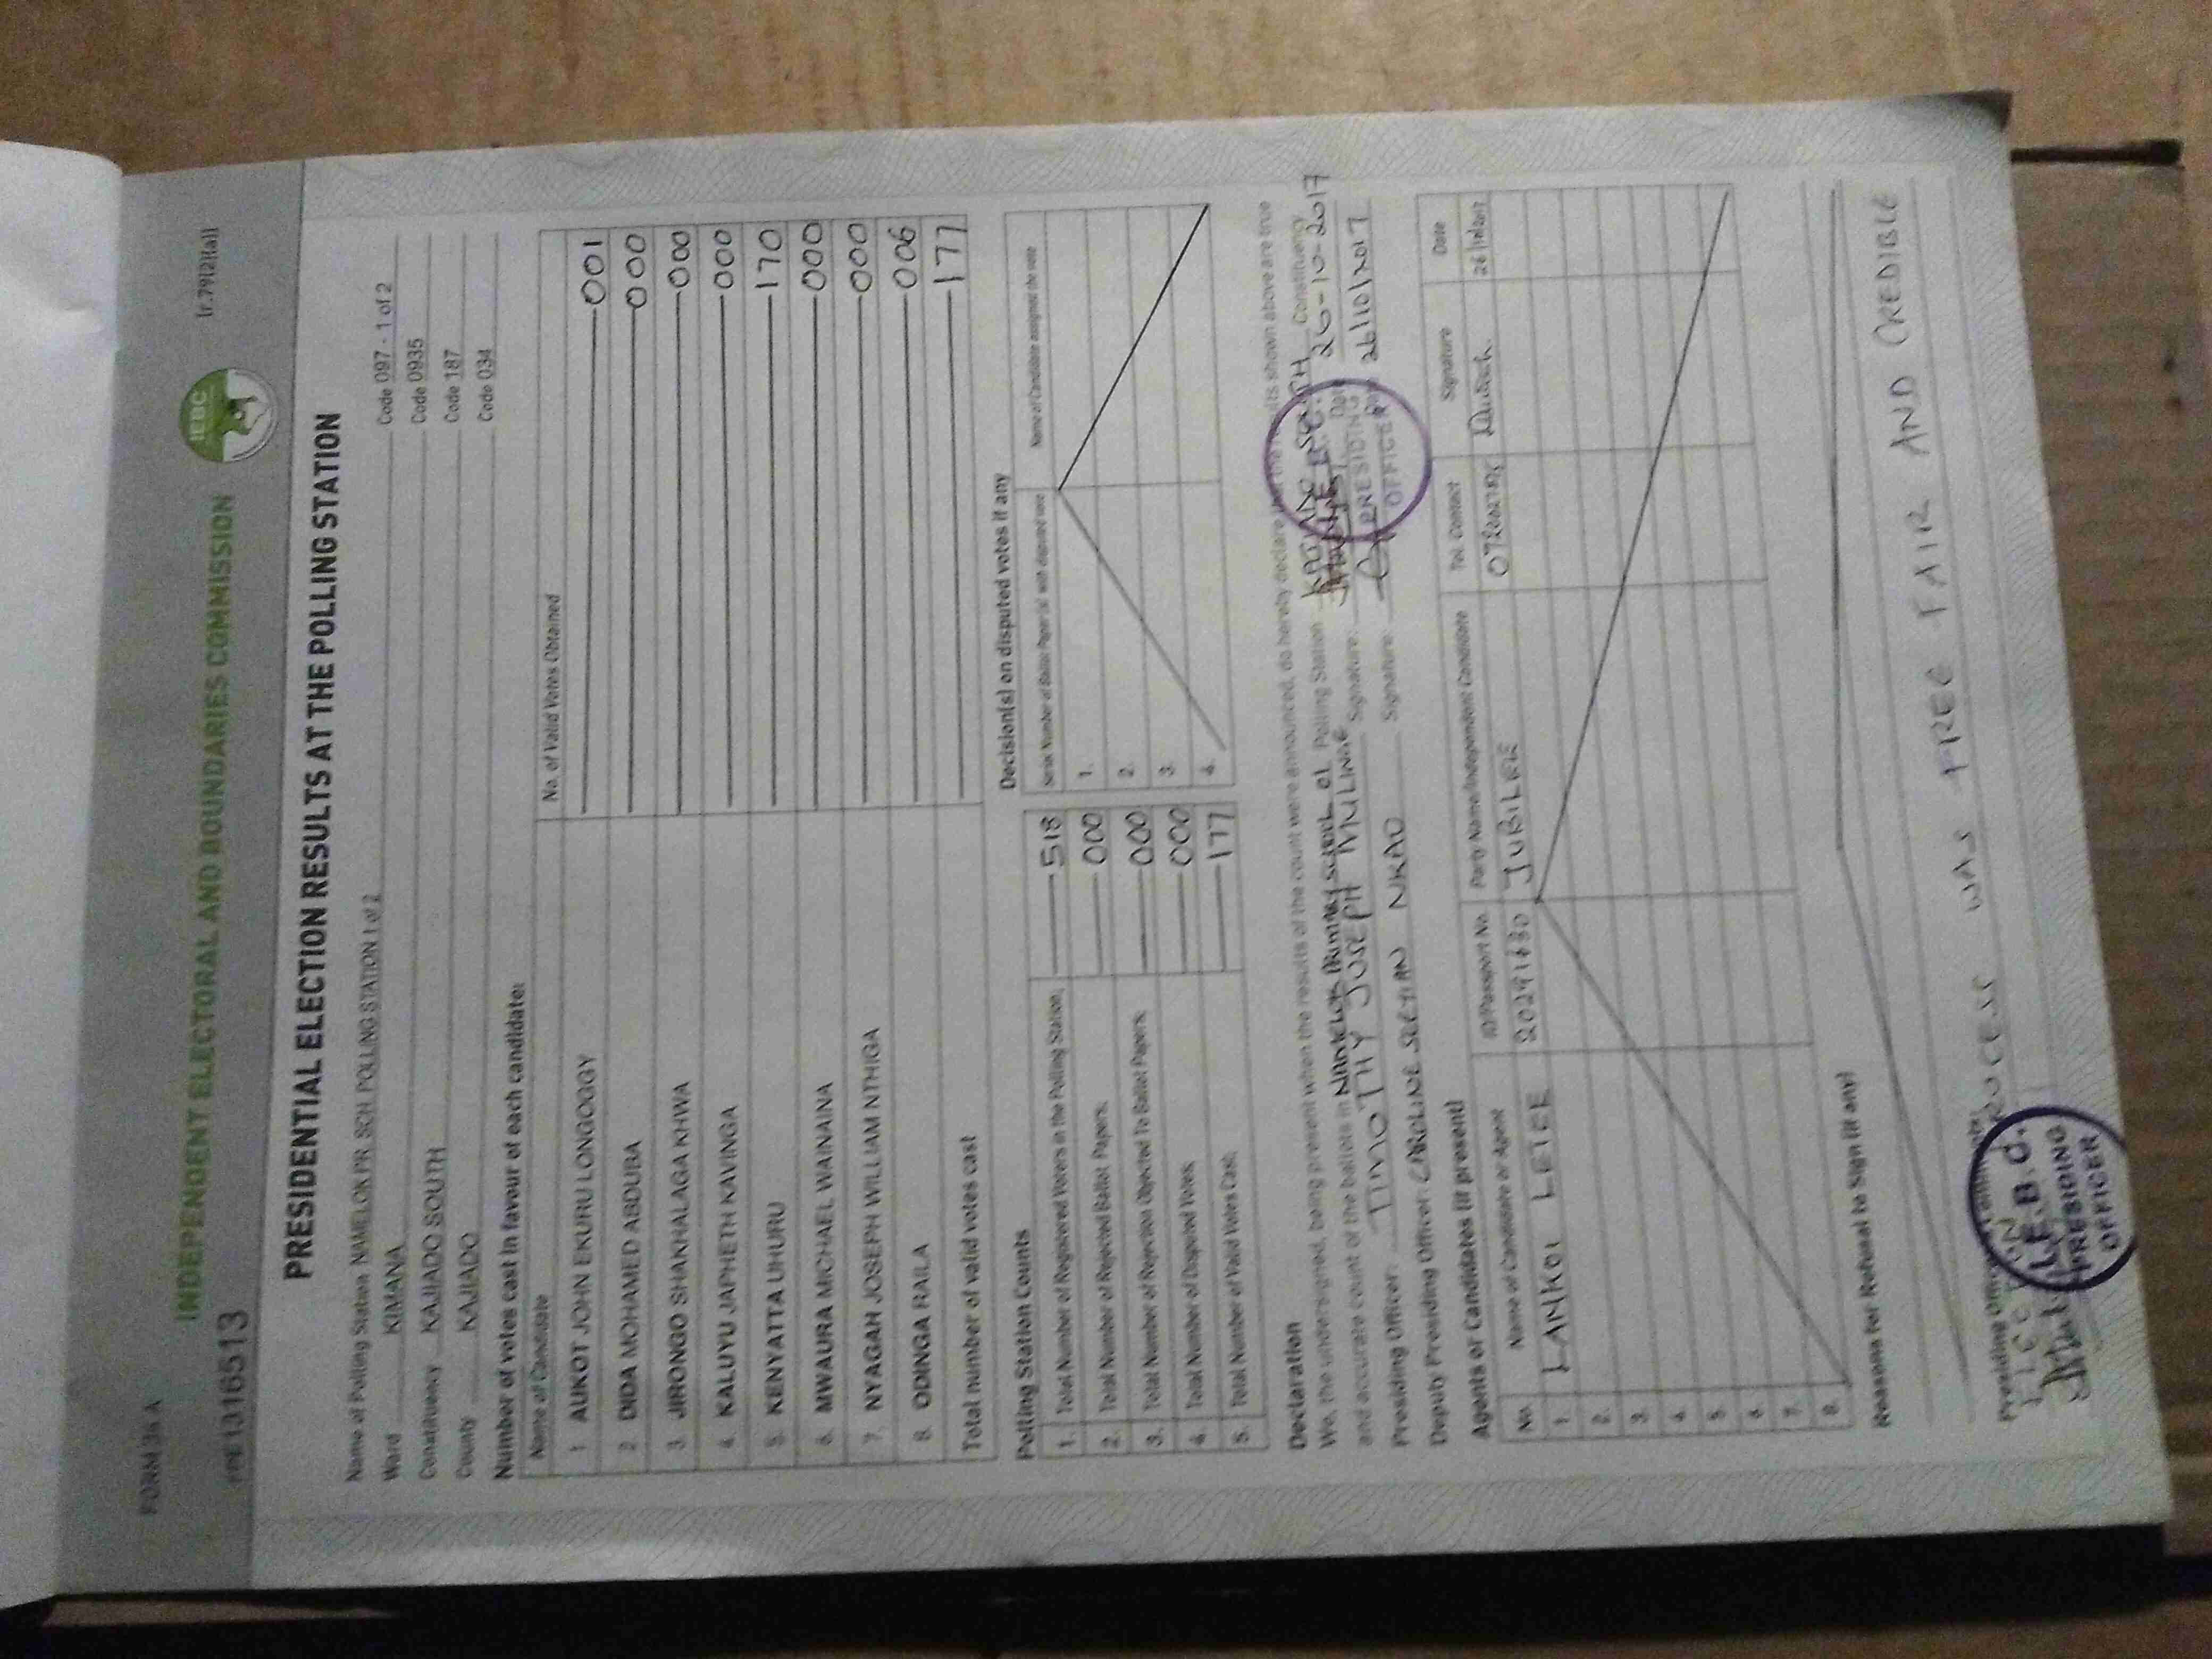 FORM 34 A
[r.79(2)(a)]
INDEPENDENT ELECTORAL AND BOUNDARIES COMMISSION
IEBC
1316513
PRESIDENTIAL ELECTION RESULTS AT THE POLLING STATION
Name of Polling Station NAMELOK PR. SCH. POLLING STATION 1 of 2 Code 097 - 1 of 2
Ward KIMANA Code 0935
Constituency KAJIADO SOUTH Code 187
County KAJIADO Code 034
Number of votes cast in favour of each candidate:
Name of Candidate No. of Valid Votes Obtained
1 AUKOT JOHN EKURU LONGOGGY 001
2 DIDA MOHAMED ABDUBA 000
3. JIRONGO SHAKHALAGA KHWA 000
4. KALUYU JAPHETH KAVINGA 000
5. KENYATTA UHURU 170
6. MWAURA MICHAEL WAINAINA 000
7. NYAGAH JOSEPH WILLIAM NTHIGA 000
8. ODINGA RAILA 006
Total number of valid votes cast 177
Polling Station Counts
1. Total Number of Registered Voters in the Polling Station; 518
2. Total Number of Rejected Ballot Papers; 000
3. Total Number of Rejection Objected To Ballot Papers; 000
4. Total Number of Disputed Votes; 000
5. Total Number of Valid Votes Cast; 177
Decision(s) on disputed votes if any
Serial Number of Ballot Paper(s) with disputed vote Name of Candidate assigned the vote
1.
2.
3.
4.
Declaration
We, the undersigned, being present when the results of the count were announced, do hereby declare that the results shown above are true
and accurate count of the ballots in NAMELOK PRIMARY SCHOOL 01 Polling Station KAJIADO SOUTH Constituency
Presiding Officer: TIMOTHY JOSEPH MULINGE Signature: Date 26-10-2017
Deputy Presiding Officer: CAROLINE NKAO Signature: Date 26/10/2017
I.E.B.C. PRESIDING OFFICER
Agents or Candidates (if present)
No. Name of Candidate or Agent ID/Passport No. Party Name/Independent Candidate Tel. Contact Signature Date
1. LANKOI LETEE 20291680 JUBILEE 26/10/2017
2.
3.
4.
5.
6.
7.
8.
Reasons for Refusal to Sign (if any)
Presiding Officer
PROCESS WAS FREE FAIR AND CREDIBLE
I.E.B.C.
PRESIDING
OFFICER